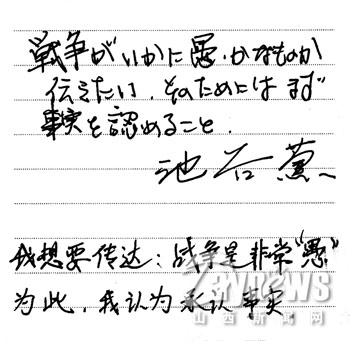 戦争がいかに愚かなものか
伝えたい。そのためにはまず
事実を認めること。
池谷薫
我想要传达：战争是非常“愚”
为此，我认为承认事实
山西新闻网